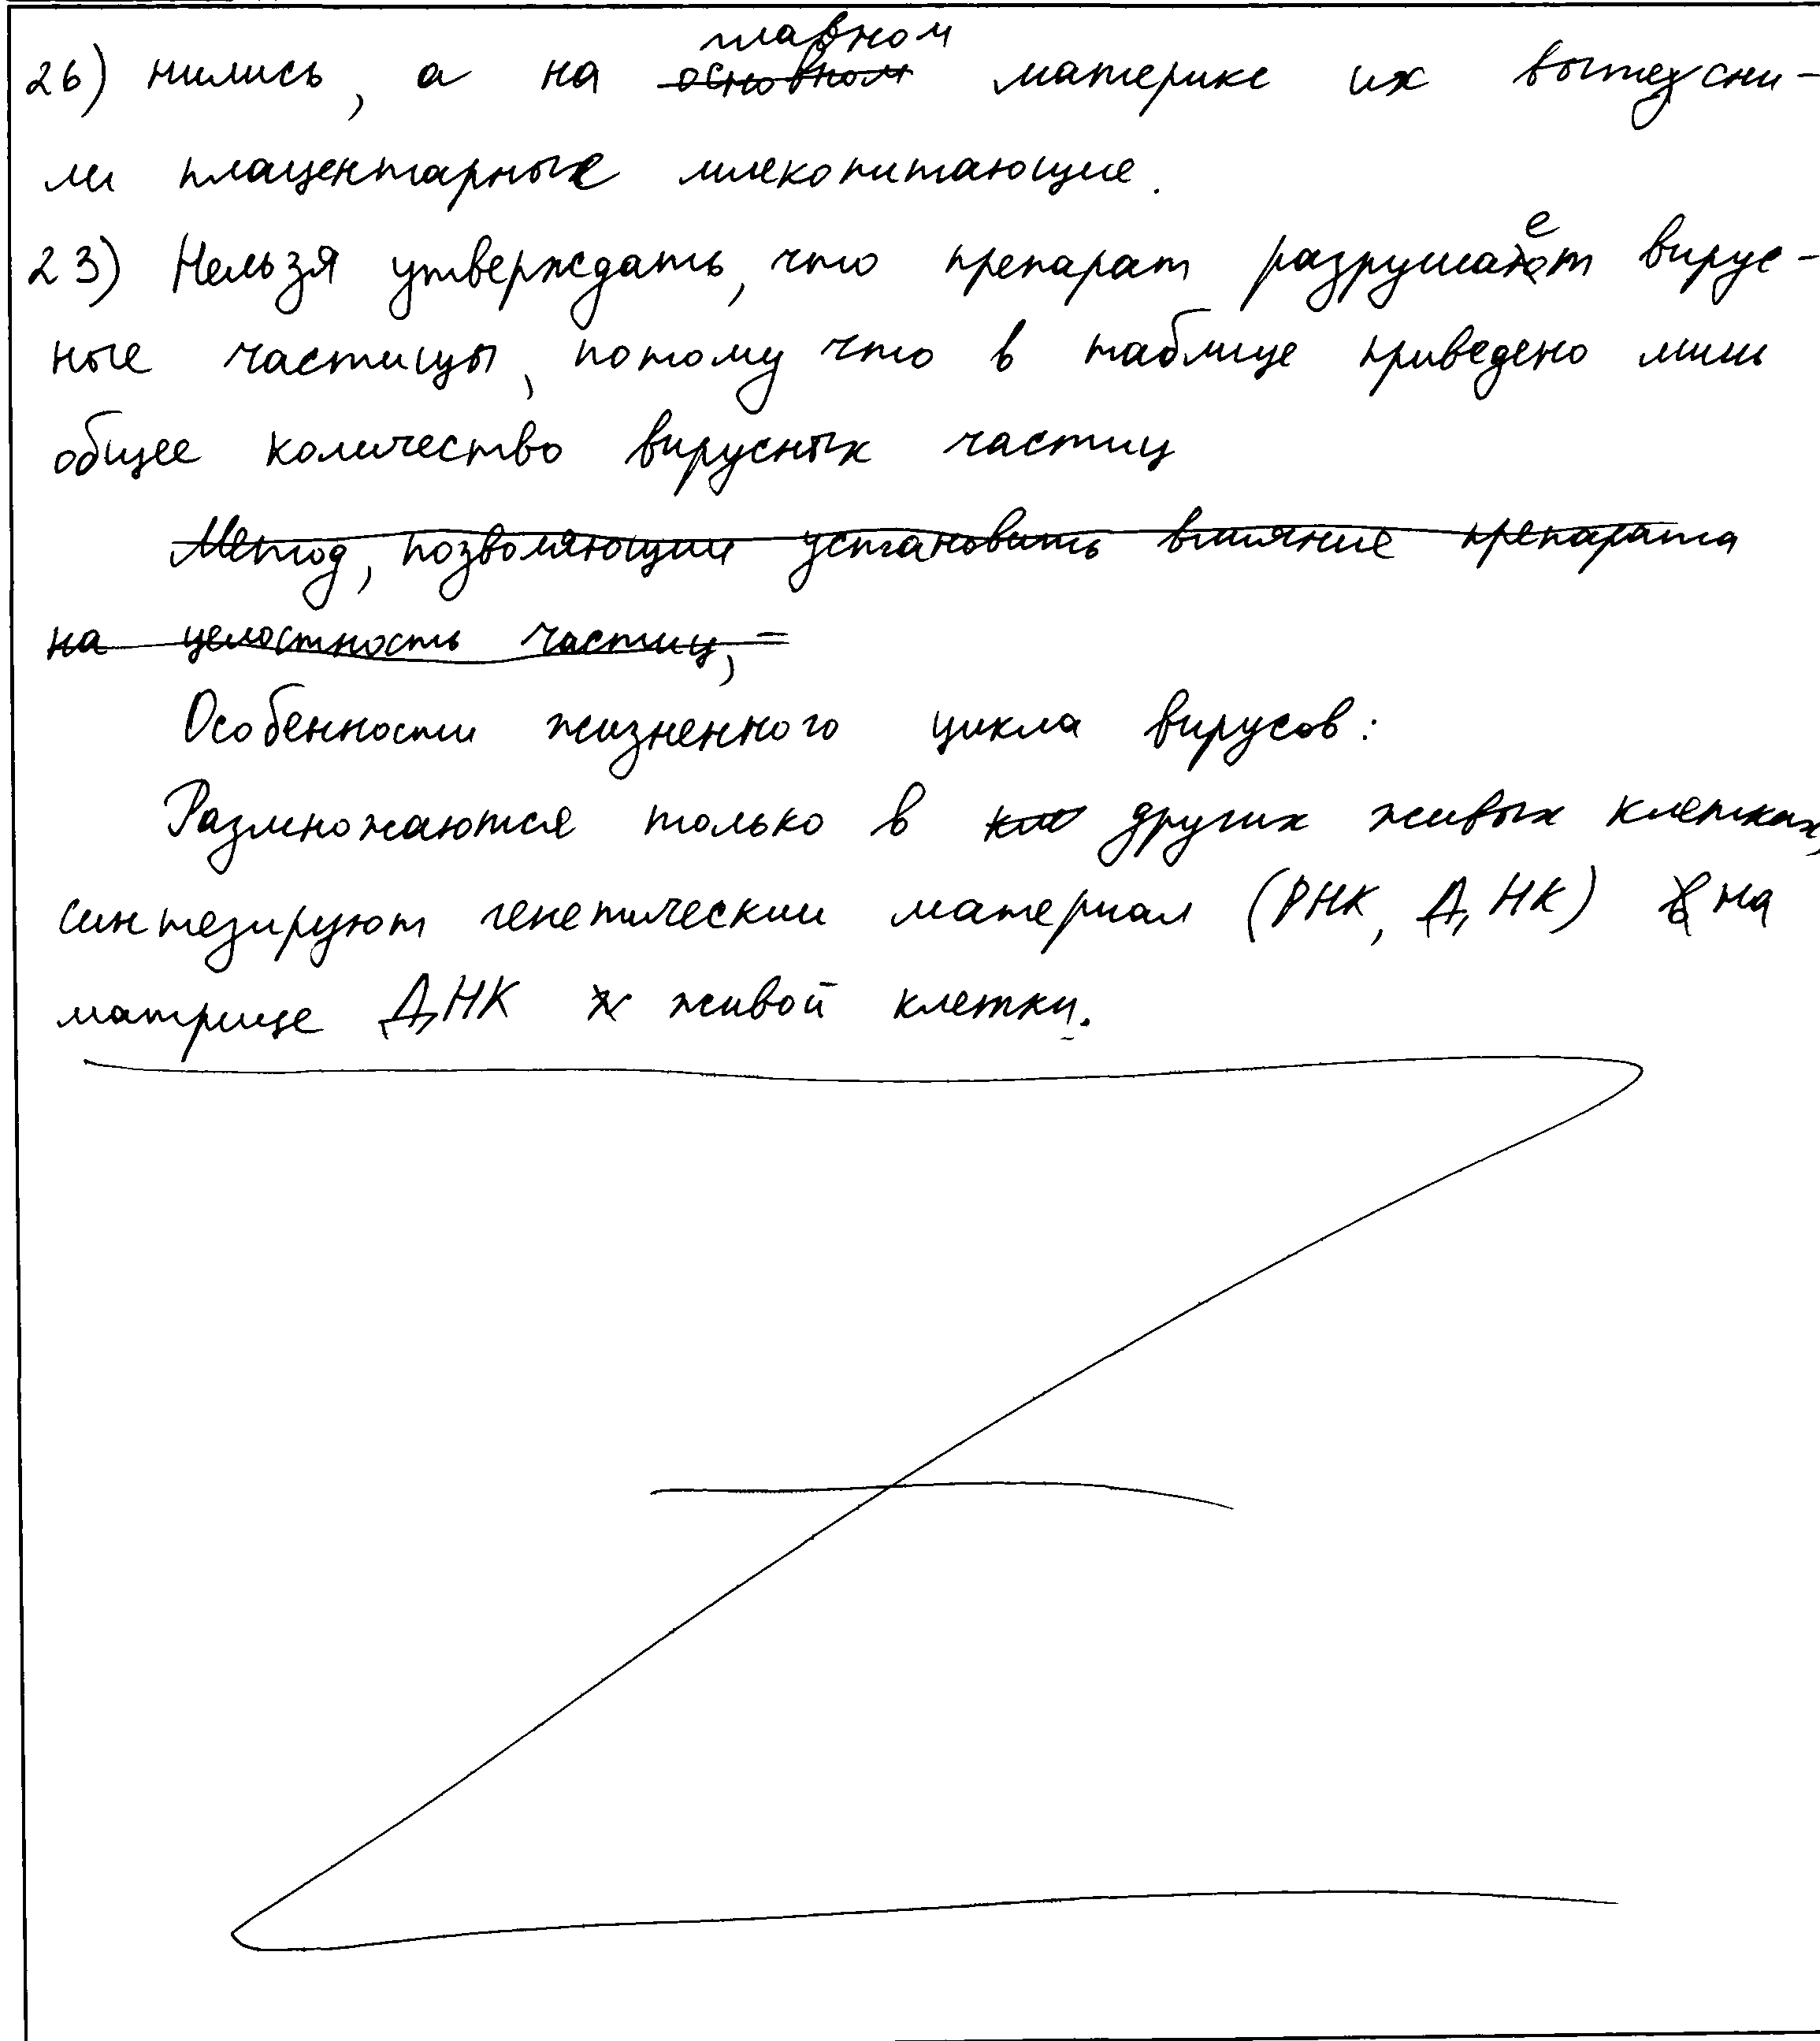 26) нились, а на главном ~~основном~~ материке их вытесни-
ли плацентарные млекопитающие.
23) Нельзя утверждать, что препарат разрушает вирус-
ные частицы, потому что в таблице приведено лишь
общее количество вирусных частиц
~~Метод, позволяющий установить влияние препарата~~
~~на целостность частиц, –~~
Особенности жизненного цикла вирусов:
Размножаются только в ~~кле~~ других живых клетках,
синтезируют генетический материал (РНК, ДНК) ~~в~~ на
матрице ДНК живой клетки.